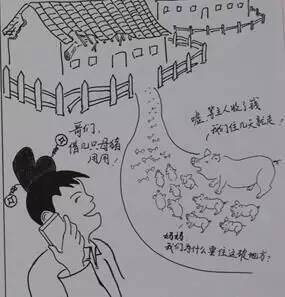 哥们,
借几只母猪
用用!
嘘,等主人收了钱
我们住几天就走!
妈妈
我们为什么要住这破地方?